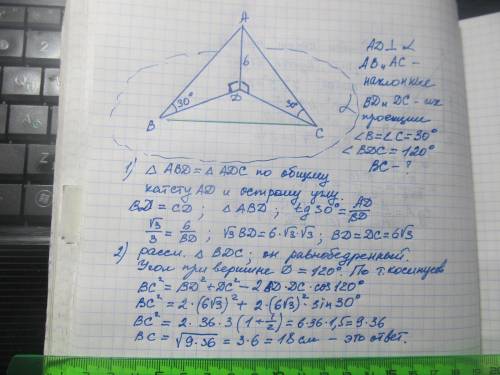 A
6
30°
D
30°
B
C
α
AD ⊥ α
AB и AC –
наклонные
BD и DC – их
проекции
∠B = ∠C = 30°
∠BDC = 120°
BC – ?
1) △ABD = △ADC по общему
катету AD и острому углу.
BD = CD ; △ABD ; tg 30° = AD/BD
√3/3 = 6/BD ; √3 BD = 6·√3·√3 ; BD = DC = 6√3
2) рассм. △BDC, он равнобедренный.
Угол при вершине D = 120°. По т. косинусов
BC² = BD² + DC² – 2BD·DC·cos 120°
BC² = 2·(6√3)² + 2·(6√3)² sin 30°
BC² = 2·36·3(1 + 1/2) = 6·36·1,5 = 9·36
BC = √9·36 = 3·6 = 18 см – это ответ.